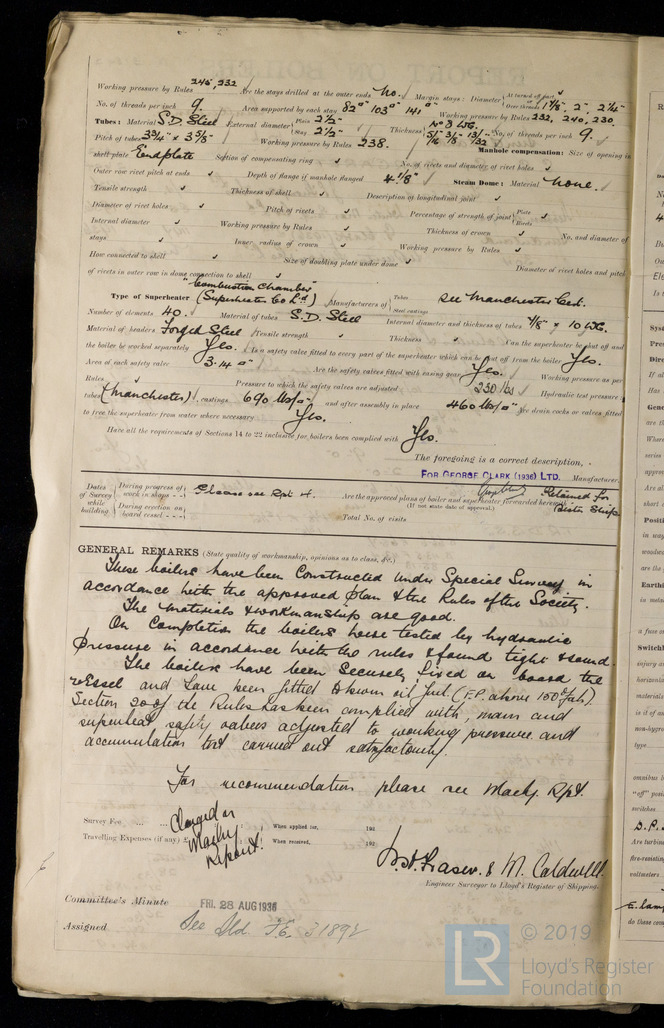 Working pressure by Rules 245, 232 Are the stays drilled at the outer ends No. Margin stays: Diameter { At turned off part, or Over threads 1 7/8", 2", 2 1/4"
No. of threads per inch 9. Area supported by each stay 82" 103" 141" Working pressure by Rules 232, 240, 230.
Tubes: Material S.D. Steel External diameter { Plain 2 1/2" Stay 2 1/2" Thickness { No. of threads per inch 9.
Pitch of tubes 3 3/4" x 3 5/8" Working pressure by Rules 238. Manhole compensation: Size of opening in
shell plate Endplate Section of compensating ring No. of rivets and diameter of rivet holes
Outer row rivet pitch at ends Depth of flange if manhole flanged 4 1/8" Steam Dome: Material None.
Tensile strength Thickness of shell Description of longitudinal joint
Diameter of rivet holes Pitch of rivets Percentage of strength of joint { Plate Rivets
Internal diameter Working pressure by Rules Thickness of crown No. and diameter of
stays Inner radius of crown Working pressure by Rules
How connected to shell Size of doubling plate under dome Diameter of rivet holes and pitch
of rivets in outer row in dome connection to shell
"Combustion Chamber"
Type of Superheater (Superheater Co Ltd) Manufacturers of { Tubes Steel castings See Manchester Cert.
Number of elements 40. Material of tubes S.D. Steel Internal diameter and thickness of tubes 7/8" x 10 WG.
Material of headers Forged Steel Tensile strength Thickness Can the superheater be shut off and
the boiler be worked separately Yes. Is a safety valve fitted to every part of the superheater which can be shut off from the boiler Yes.
Area of each safety valve 3.14 " Are the safety valves fitted with easing gear Yes. Working pressure as per
Rules Pressure to which the safety valves are adjusted 230 lbs Hydraulic test pressure:
tubes (Manchester), castings 690 lbs/" and after assembly in place 460 lbs/" Are drain cocks or valves fitted
to free the superheater from water where necessary Yes.
Have all the requirements of Sections 14 to 22 inclusive for boilers been complied with Yes.
The foregoing is a correct description,
FOR GEORGE CLARK (1936) LTD. Manufacturer.
Dates of Survey while building { During progress of work in shops - - Please see Rpt 4. Are the approved plans of boiler and superheater forwarded herewith Retained for Sister Ship
During erection on board vessel - - - (If not state date of approval.)
Total No. of visits
GENERAL REMARKS (State quality of workmanship, opinions as to class, &c.)
These boilers have been Constructed under Special Survey in
accordance with the approved plan & the Rules of the Society.
The materials & workmanship are good.
On Completion the boilers were tested by hydraulic
pressure in accordance with the rules & found tight & sound.
The boilers have been Securely fixed on board the
vessel and have been fitted to burn oil fuel (F.P. above 150° fah).
Section 20 of the Rules has been complied with, main and
superheat safety valves adjusted to working pressure and
accumulation test carried out satisfactorily.
For recommendation please see Machy. Rpt.
Survey Fee ... ... Charged on When applied for, 192
Travelling Expenses (if any) Machy Report. When received, 192
Fraser. & M. Caldwell.
Engineer Surveyor to Lloyd's Register of Shipping.
Committee's Minute FRI. 28 AUG 1936
Assigned See Sld. F.E. 31892
© 2019
LR Lloyd's Register
Foundation